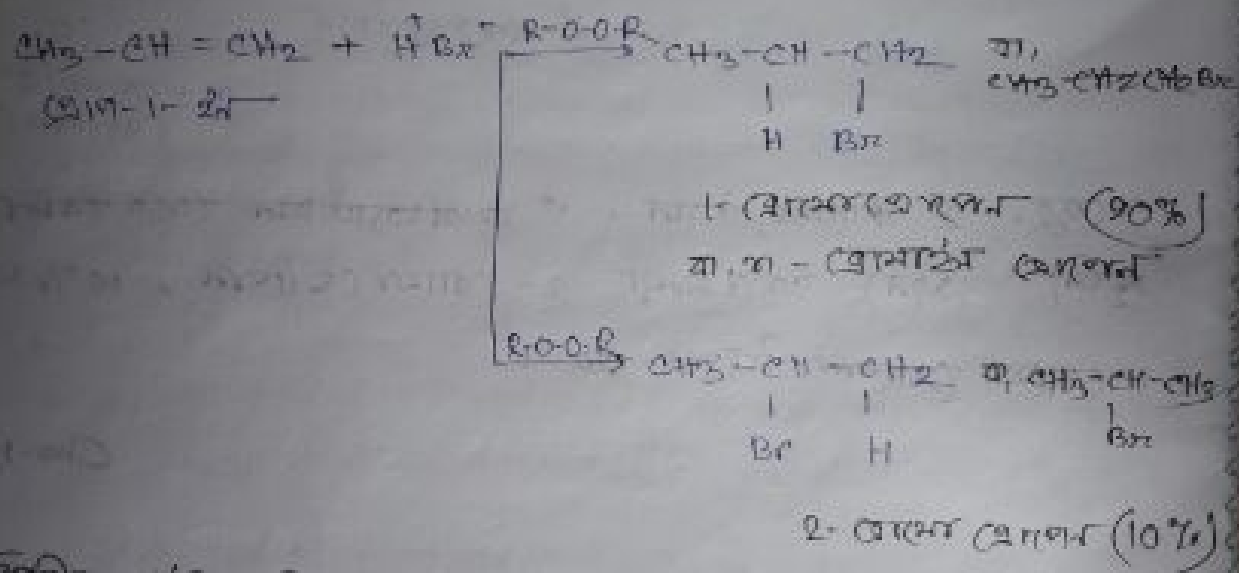 CH3-CH = CH2 + H⁺Br⁻ R-O-O-R CH3-CH-CH2 বা, CH3-CH2CH2Br
প্রোপ-1-ইন
H Br
1- ব্রোমোপ্রোপেন (90%)
বা, n - প্রোপাইল
R-O-O-R CH3-CH-CH2 বা, CH3-CH-CH3
Br H Br
2- ব্রোমো প্রোপেন (10%)